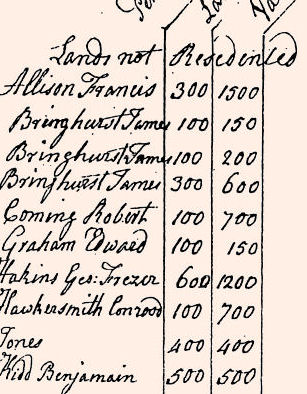 Lands not Resedented
Allison Francis 300 1500
Bringhurst James 100 150
Bringhurst James 100 200
Bringhurst James 300 600
Coming Robert 100 700
Graham Edward 100 150
Hakins Geo: Frezer 600 1200
Hawkersmith Conrood 100 700
Jones 400 400
Kidd Benjamain 500 500